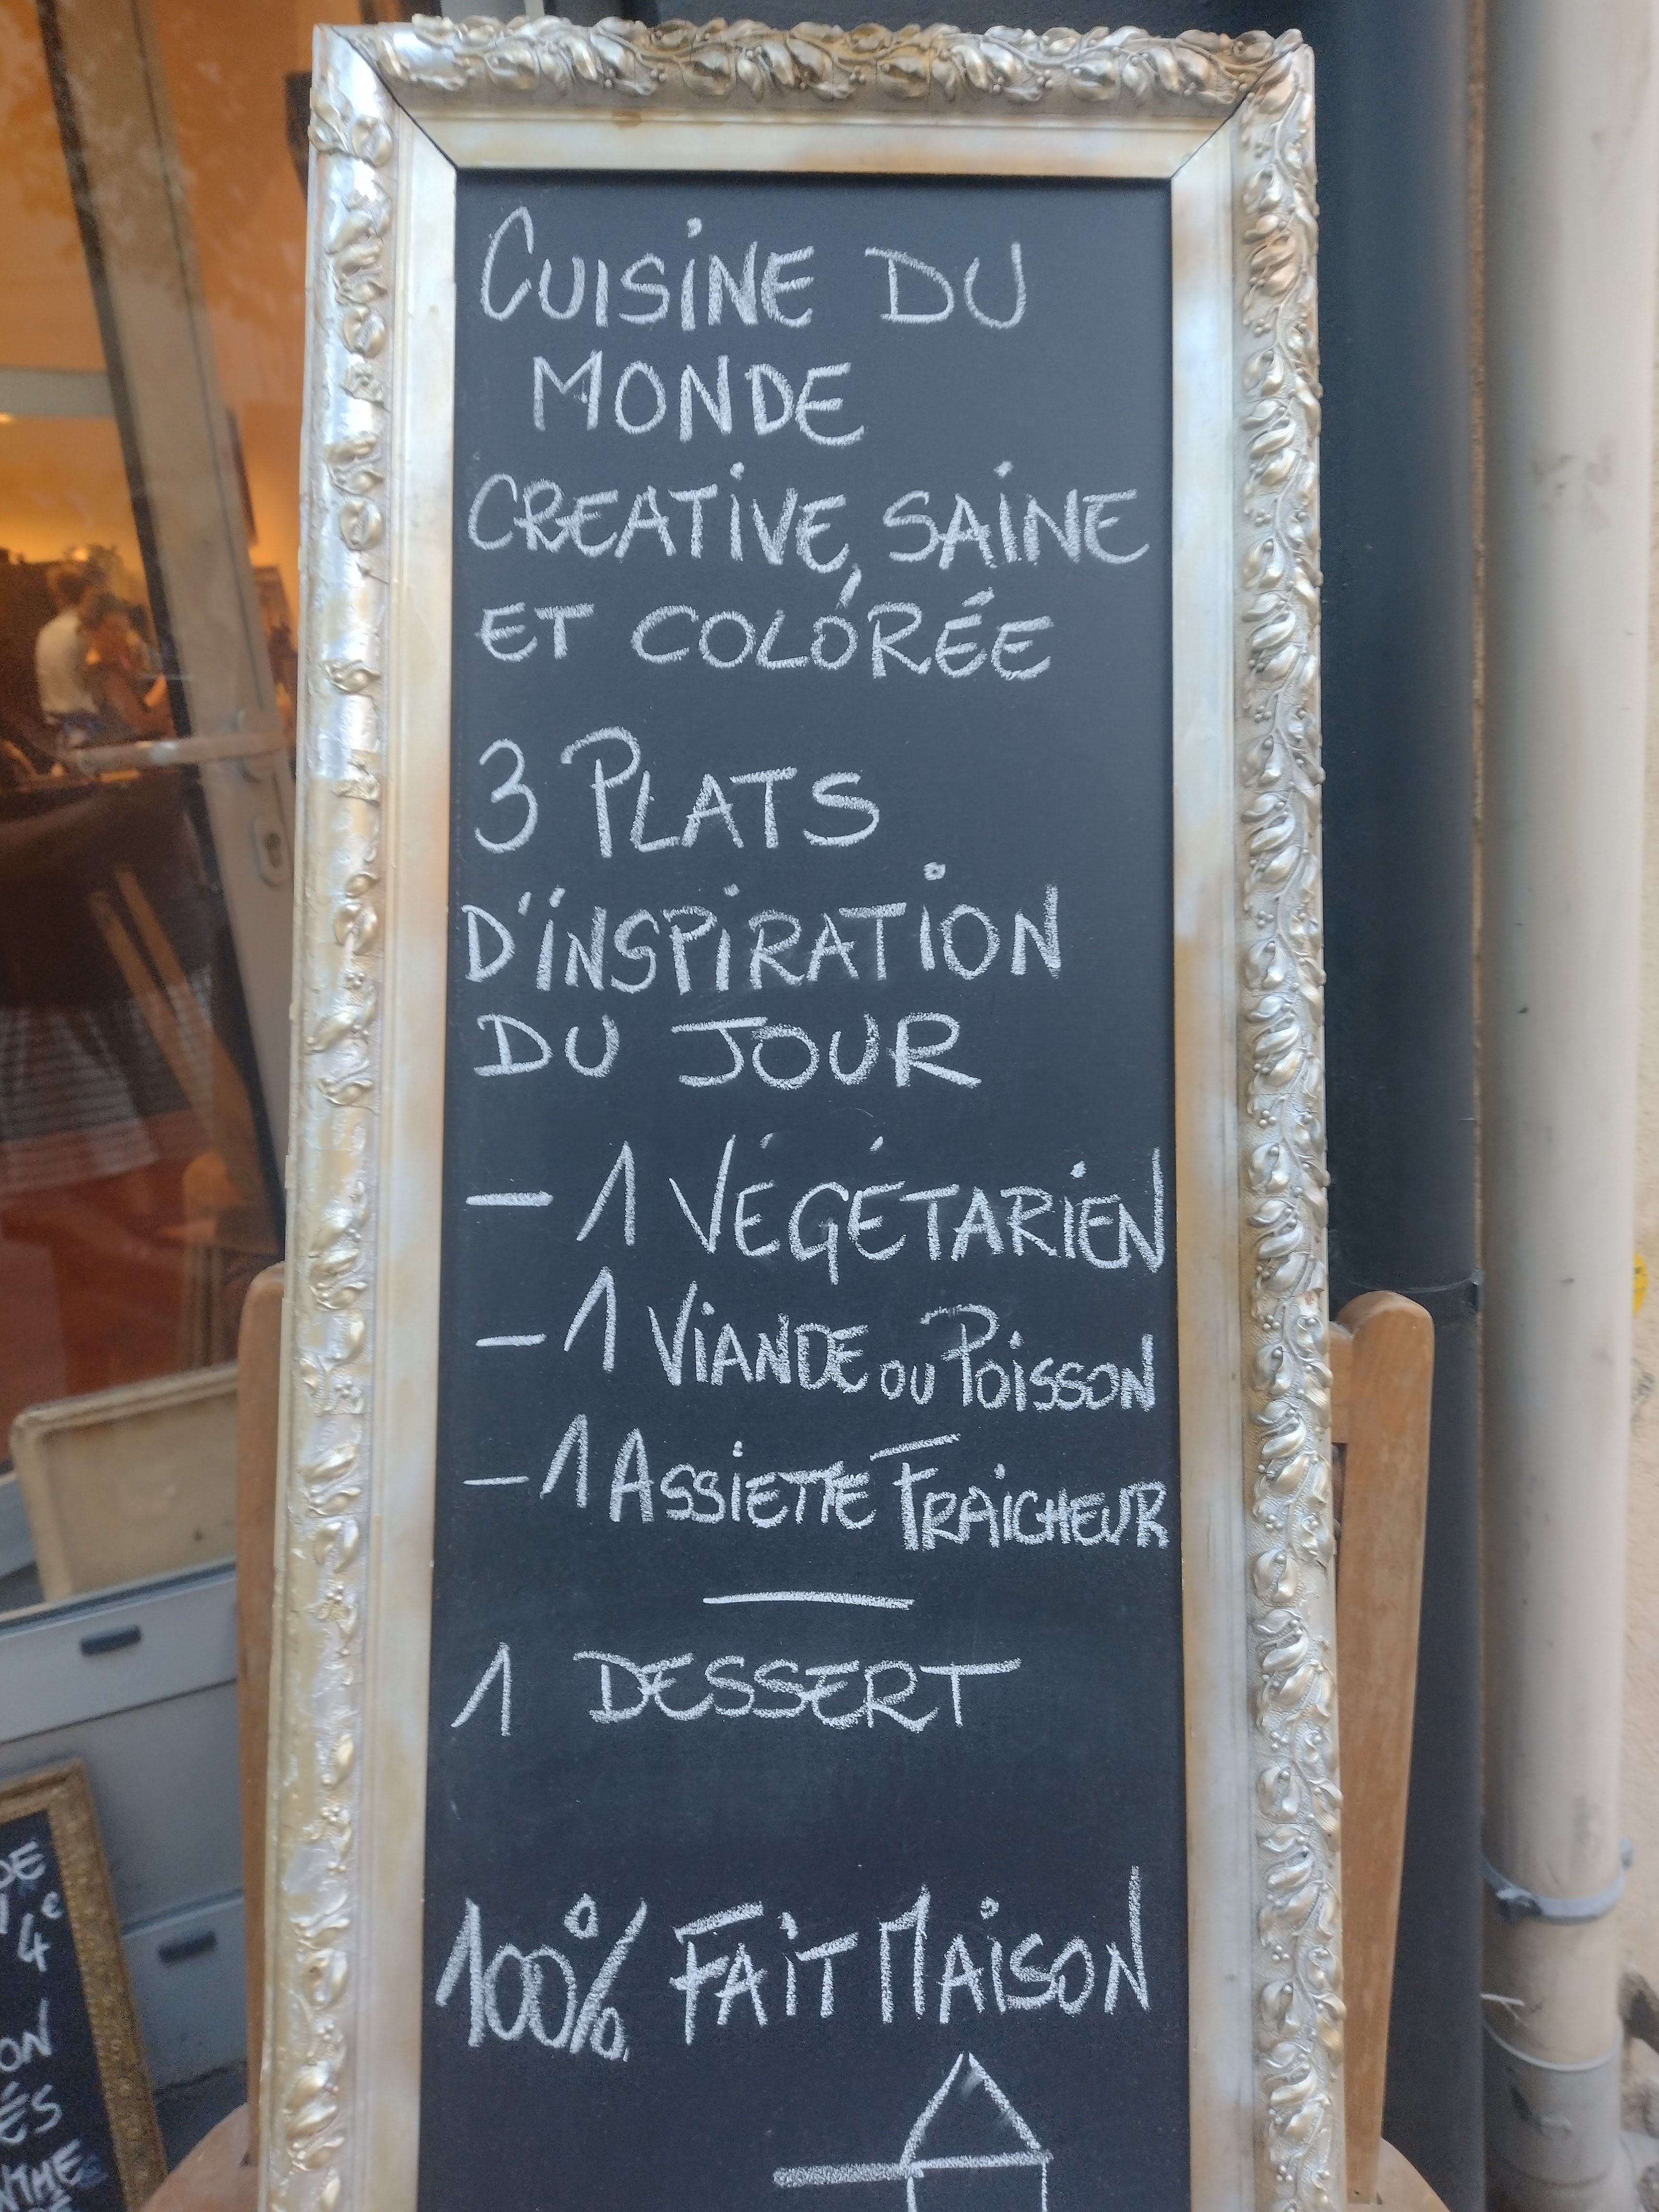 CUISINE DU
MONDE
CREATIVE, SAINE
ET COLORÉE
3 PLATS
D'INSPIRATION
DU JOUR
- 1 VÉGÉTARIEN
- 1 VIANDE OU POISSON
- 1 ASSIETTE FRAICHEUR
1 DESSERT
100% FAIT MAISON
DE
4€
ON
ÉS